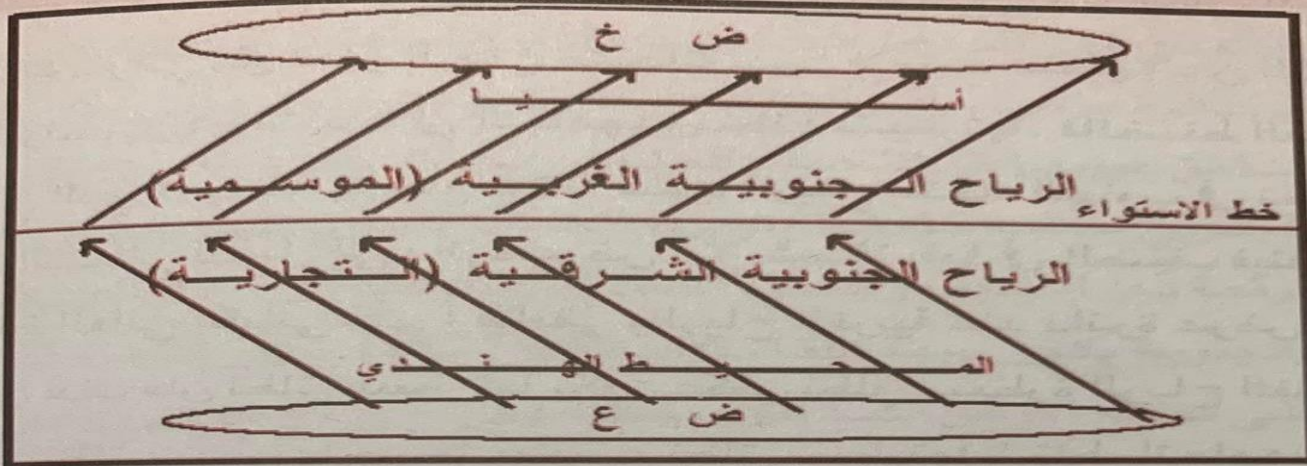 ض خ
أسيا
الرياح الجنوبية الغربية (الموسمية)
خط الاستواء
الرياح الجنوبية الشرقية (التجارية)
المحيط الهندي
ض ع